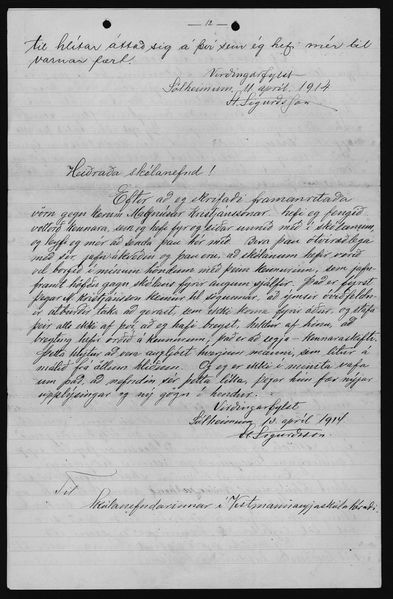 - 12 -
til hlítar áttað sig á því sem ég hefi mér til
varnar fært.
Virðingarfylst
Sólheimum, 11 apríl. 1914
St. Sigurðsson
Heiðraða skólanefnd!
Eftir að eg skrifaði framanritaða
vörn gegn kærum Magnúsar Kristjánssonar, hefi eg fengið
vottorð kennara, sem eg hefi fyr og síðar unnið með í skólanum,
og leyfi eg mér að senda þau hér með. Bera þau ótvíræðlega
með sér, að skólanum hefir verið
vel borgið í mínum höndum með þeim kennurum, sem jafn-
framt höfðu gagn skólans fyrir augum sjálfir. Það er fyrst
þegar M. Kristjánsson kemur til sögunnar, að ýmsir óvæntir
atburðir taka að gerast, sem ekki koma fyrir áður, og stafa
þeir alls ekki af því, að eg hafi breyst, heldur af hinu, að
breyting hefir orðið á kennurum, það er að segja - kennaraskifti.
Þetta hlýtur að vera augljóst hverjum manni, sem lítur á
málið frá öllum hliðum. Og eg er ekki í minsta vafa
um það, að nefndin sér þetta líka, þegar hún fær nýjar
upplýsingar og ný gögn í hendur.
Virðingarfylst
Sólheimum, 10. apríl 1914
St. Sigurðsson
Til
Skólanefndarinnar í Vestmannaeyjaskólahéraði.